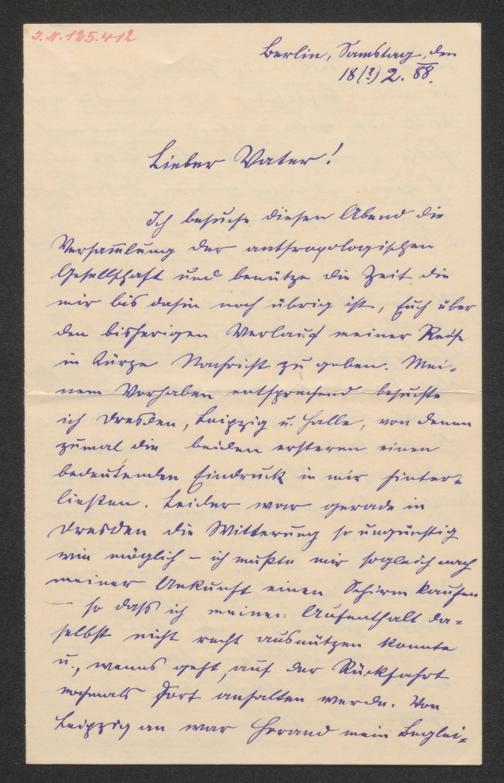 I.N. 125.412
Berlin, Samstag, den
18(?) 2. 88.
Lieber Vater!
Ich besuche diesen Abend die
Versam̅lung der anthropologischen
Gesellschaft und benütze die Zeit die
mir bis dahin noch übrig ist, Euch über
den bisherigen Verlauf meiner Reise
in Kürze Nachricht zu geben. Mei-
nem Vorhaben entsprechend besuchte
ich Dresden, Leipzig u. Halle, von denen
zumal die beiden ersteren einen
bedeutenden Eindruck in mir hinter=
ließen. Leider war gerade in
Dresden die Witterung so ungünstig
wie möglich – ich mußte mir sogleich nach
meiner Ankunft einen Schirm kaufen
– so dass ich meinen Aufenthalt da=
selbst nicht recht ausnützen konnte
u., wenns geht, auf der Rückfahrt
nochmals dort anhalten werde. Von
Leipzig an war mein Beglei=